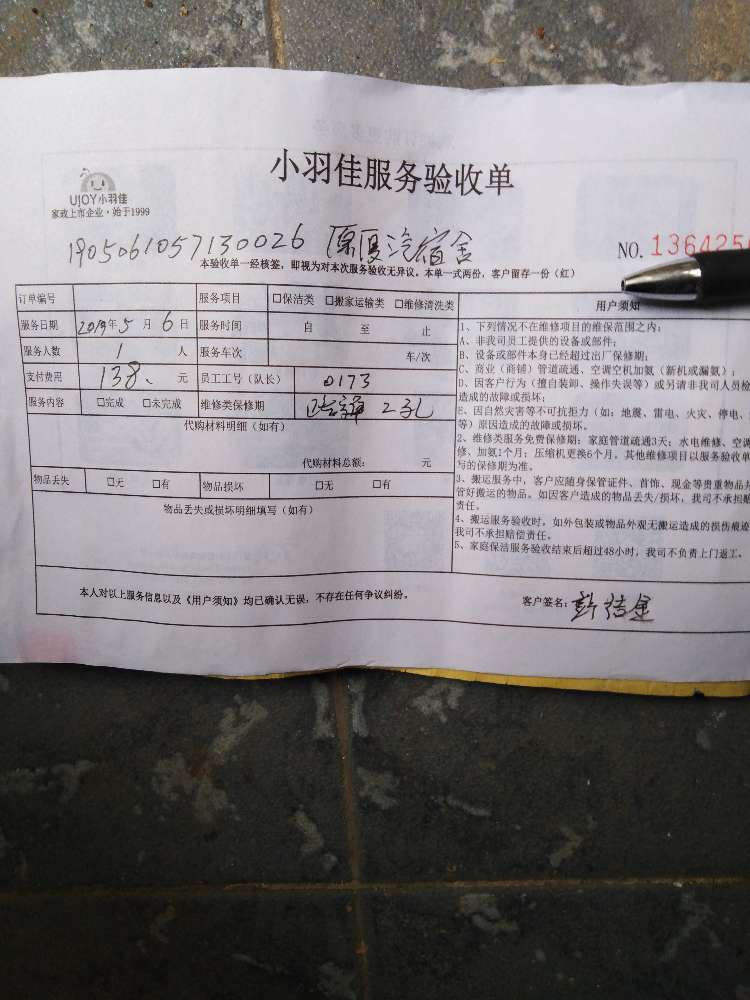 小羽佳服务验收单
UJOY小羽佳
家政上市企业·始于1999
1905061057130026
NO. 1364250
本验收单一经核签，即视为对本次服务验收无异议。本单一式两份，客户留存一份（红）
订单编号 服务项目 □保洁类 □搬家运输类 □维修清洗类
服务日期 2019年5月6日 服务时间 自 至 止
服务人数 1 人 服务车次 车/次
支付费用 138. 元 员工工号（队长） 0173
服务内容 □完成 □未完成 维修类保修期 2孔
代购材料明细（如有）
代购材料总额： 元
物品丢失 □无 □有 物品损坏 □无 □有
物品丢失或损坏明细填写（如有）
用户须知
1、下列情况不在维修项目的维保范围之内：
A、非我司员工提供的设备或部件；
B、设备或部件本身已经超过出厂保修期；
C、商业（商铺）管道疏通、空调空机加氨（新机或漏氨）；
D、因客户行为（擅自装卸、操作失误等）或另请非我司人员检
造成的故障或损坏；
E、因自然灾害等不可抗拒力（如：地震、雷电、火灾、停电、
等）原因造成的故障或损坏。
2、维修类服务免费保修期：家庭管道疏通3天；水电维修、空调
修、加氨1个月；压缩机更换6个月。其他维修项目以服务验收单
写的保修期为准。
3、搬运服务中，客户应随身保管证件、首饰、现金等贵重物品并
管好搬运的物品。如因客户造成的物品丢失/损坏，我司不承担赔
责任。
4、搬运服务验收时，如外包装或物品外观无搬运造成的损伤痕迹
我司不承担赔偿责任。
5、家庭保洁服务验收结束后超过48小时，我司不负责上门返工。
本人对以上服务信息以及《用户须知》均已确认无误，不存在任何争议纠纷。
客户签名：